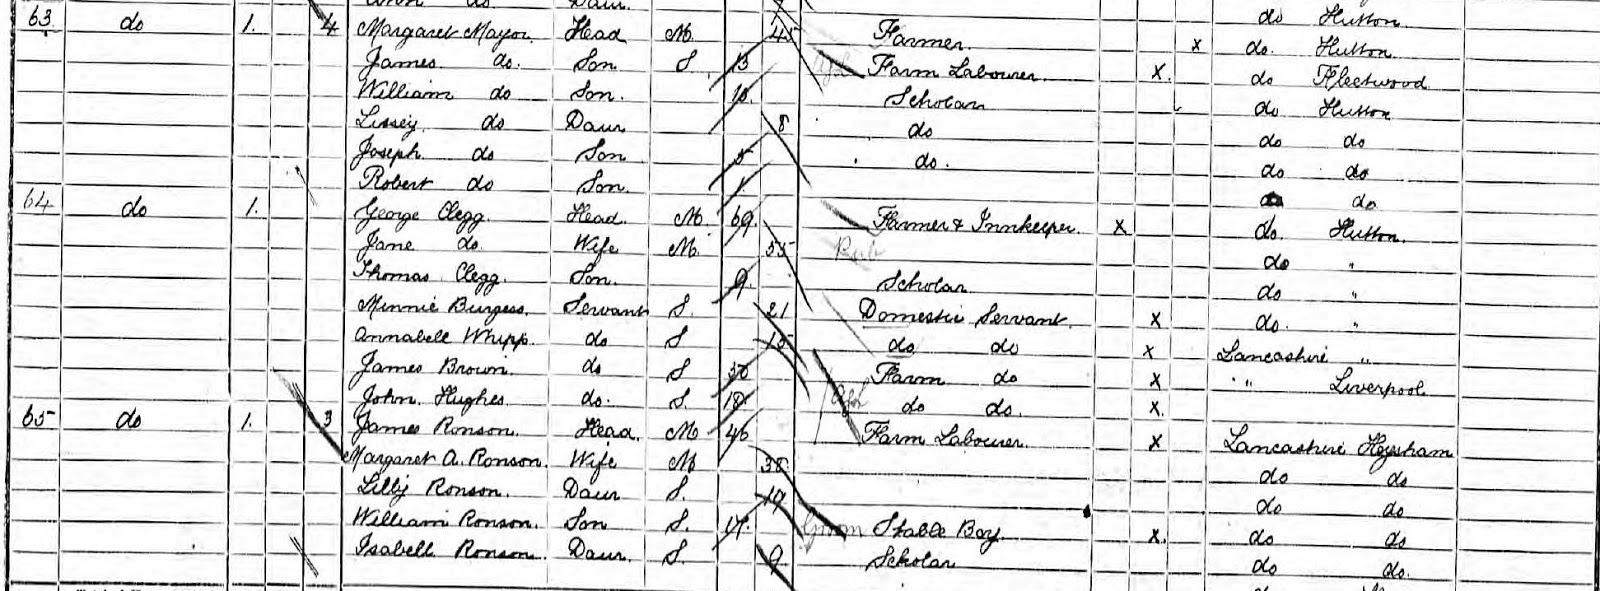 do Daur
63 do 1. 4 Margaret Mayor. Head M 45 Farmer. x do Hutton.
James do. Son S. 13 Farm Labourer. X. do. Hutton
William do Son. 10. Scholar do Fleetwood
Lissey do Daur 8 do do Hutton
Joseph do Son 5 do. do do
Robert do Son. 1 do do
64 do 1. George Clegg. Head. M. 69. Farmer & Innkeeper. X do do
Jane do. Wife M. 55 do. Hutton.
Thomas Clegg. Son. 9. Scholar do "
Minnie Burgess. Servant S. 21 Domestic Servant. X do "
Annabell Whipp. do S 15 do do X do. "
James Brown. do S 30 Farm do X Lancashire "
John. Hughes. do. S. 18 do do. X. " Liverpool.
65 do 1. 3 James Ronson. Head. M 46 Farm Labourer. X
Margaret A. Ronson. Wife M 38 Lancashire Heysham
Lilly Ronson. Daur S. 19 do do
William Ronson. Son S. 17. Groom Stable Boy. X. do do
Isabell Ronson. Daur. S. 9 Scholar do do
do do.